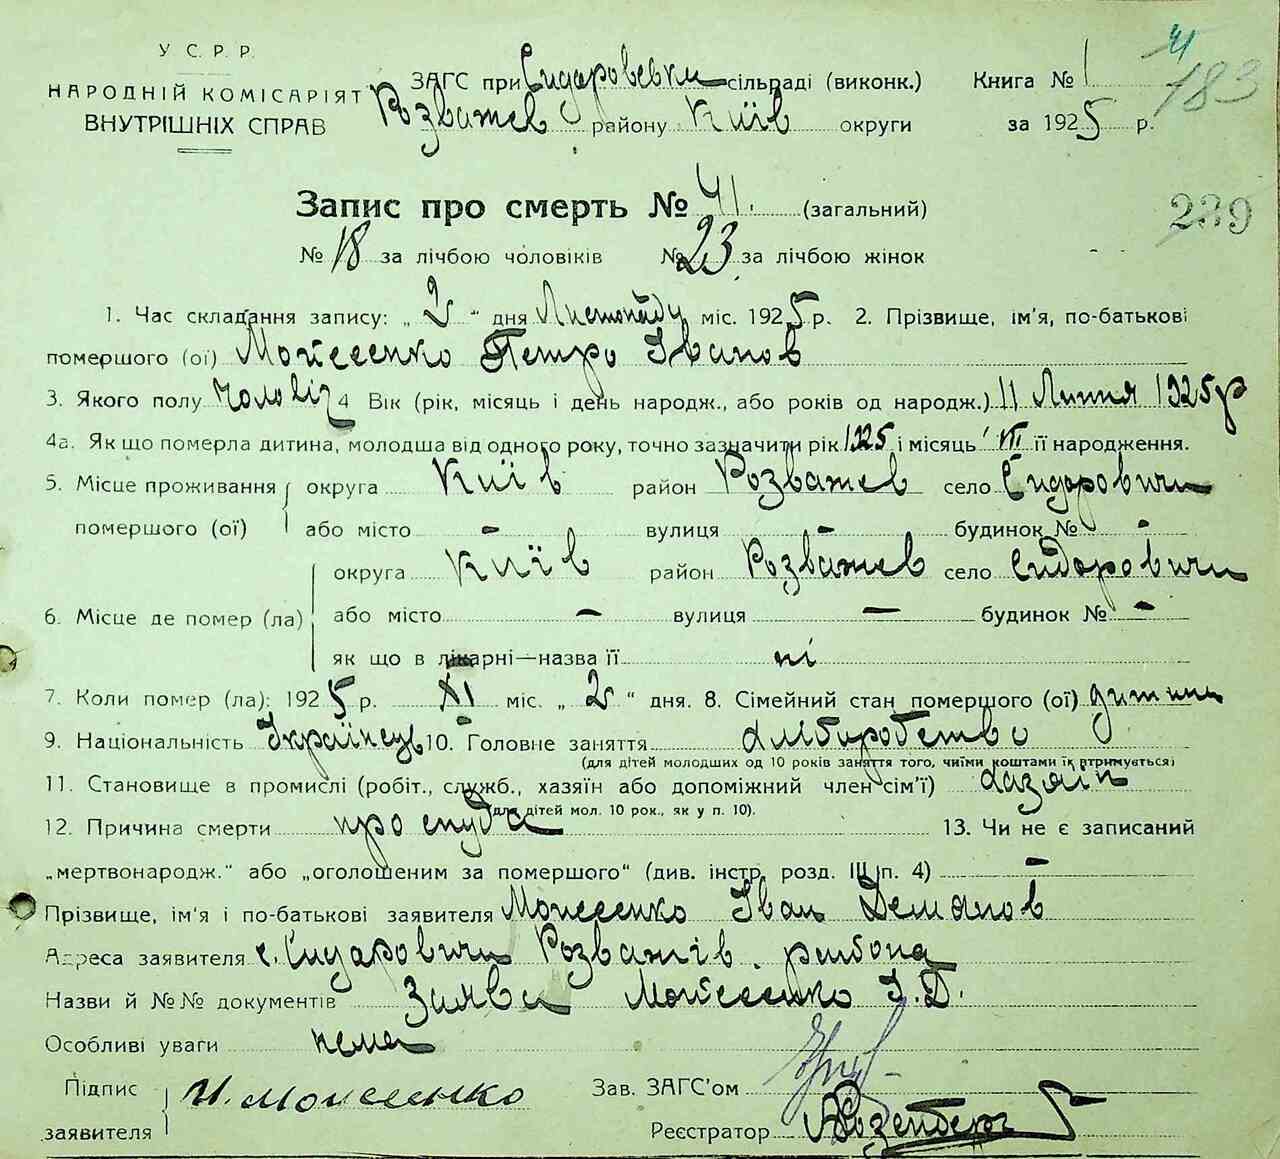 У С. Р. Р.
НАРОДНІЙ КОМІСАРІЯТ
ВНУТРІШНІХ СПРАВ
ЗАГС при Сидоровськи сільраді (виконк.)
Розважев району Київ округи
Книга № 1
за 1925 р.
41
183
239
Запис про смерть № 41. (загальний)
№ 18 за лічбою чоловіків № 23 за лічбою жінок
1. Час складання запису: „ 2 " дня Листопаду міс. 1925 р. 2. Прізвище, ім'я, по-батькові
помершого (ої) Мойсеенко Петро Іванов
3. Якого полу чоловіч 4 Вік (рік, місяць і день народж., або років од народж.) 11 Липня 1925 р
4а. Як що померла дитина, молодша від одного року, точно зазначити рік 1925 і місяць VII її народження.
5. Місце проживання помершого (ої) округа Київ район Розважев село Сидоровичи
або місто - вулиця - будинок № -
округа Київ район Розважев село Сидоровичи
6. Місце де помер (ла) або місто - вулиця - будинок № -
як що в лікарні—назва її ні
7. Коли помер (ла): 1925 р. XI міс. „ 2 " дня. 8. Сімейний стан помершого (ої) дитина
9. Національність Українець 10. Головне заняття хліборобство
(для дітей молодших од 10 років заняття того, чиїми коштами їх втримується)
11. Становище в промислі (робіт., служб., хазяїн або допоміжний член сім'ї) хазяїн
(для дітей мол. 10 рок., як у п. 10).
12. Причина смерти простуда 13. Чи не є записаний
„мертвонародж." або „оголошеним за помершого" (див. інстр. розд. III п. 4) -
Прізвище, ім'я і по-батькові заявителя Мойсеенко Іван Демянов
Адреса заявителя с. Сидаровичи Розважів. района
Назви й №№ документів Заява Мойсеенко І. Д.
Особливі уваги нема
Підпис заявителя И. Моисеенко
Зав. ЗАГС'ом
Реєстратор Розенберг